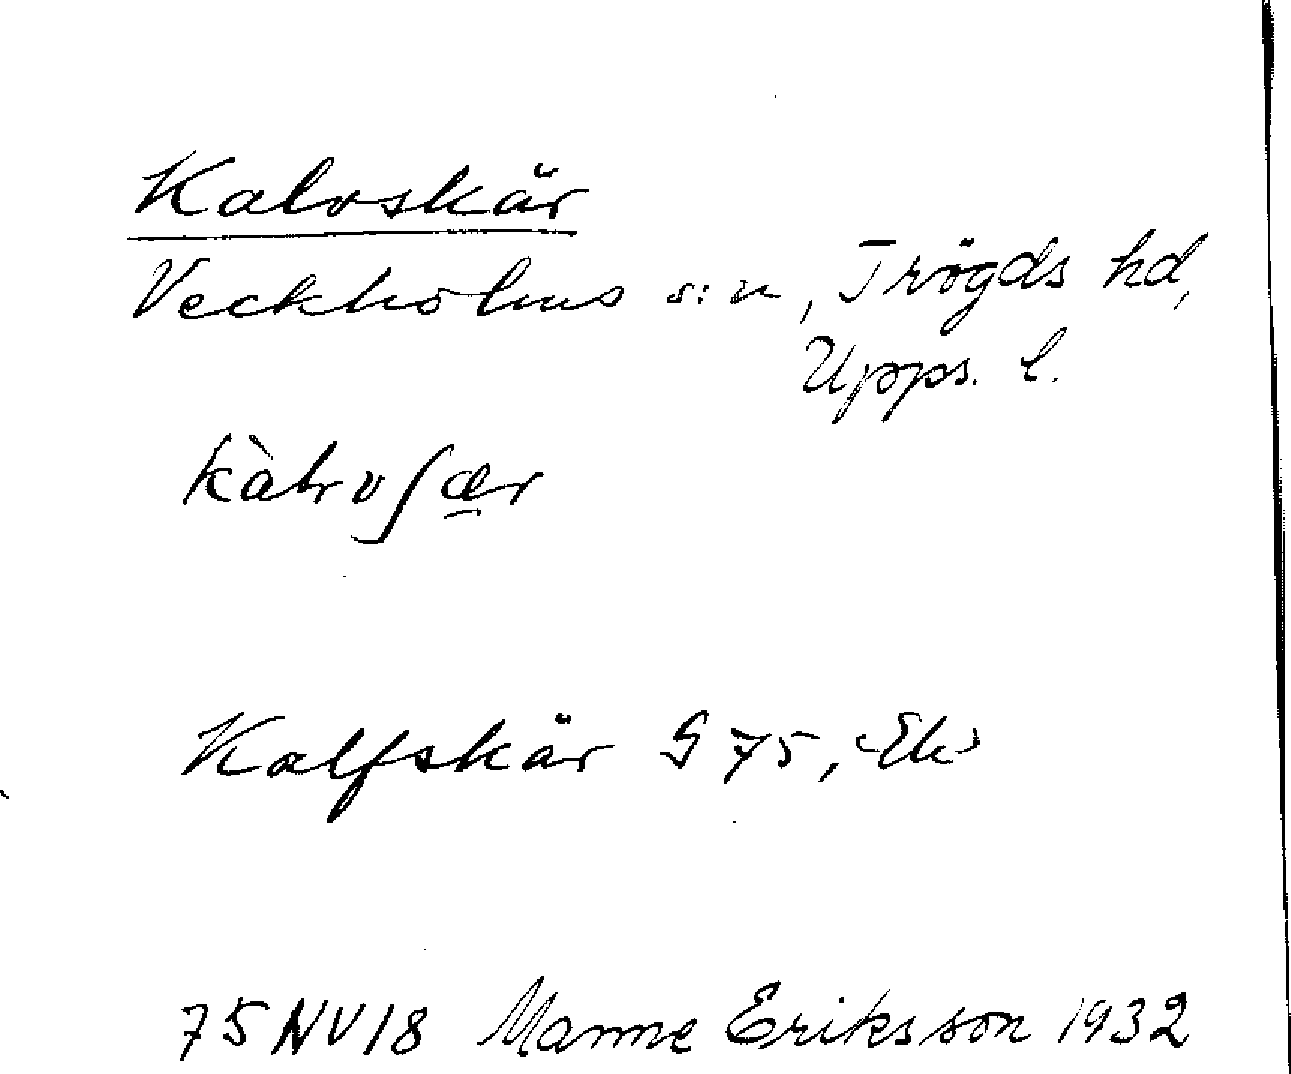 Kalvskär
Veckholms s:n, Trögds hd,
Upps. l.
Kalfskär G 75, Ek
75 NV 18 Manne Eriksson 1932